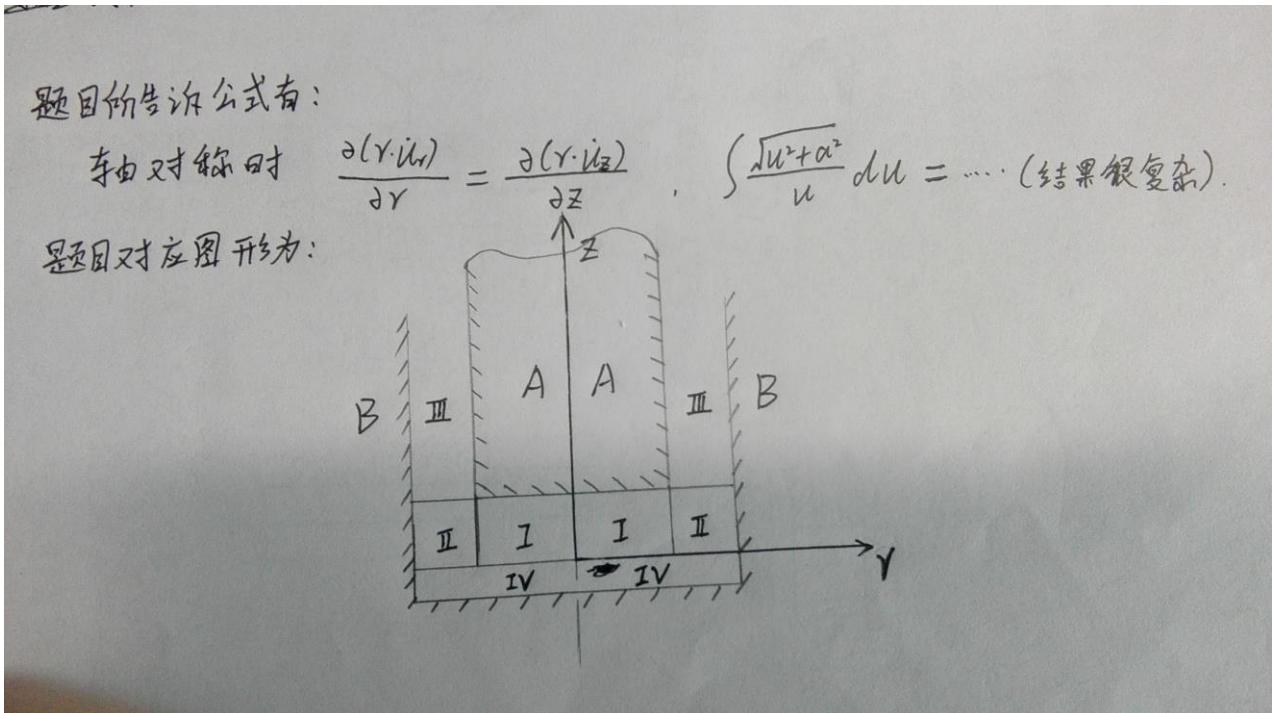 题目所告诉公式有:
轴对称时 ∂(r·u̇r)/∂r = ∂(r·u̇z)/∂z . ∫ √(u²+a²)/u du = …… (结果很复杂).
题目对应图形为:
Z
A A
B Ⅲ Ⅲ B
Ⅱ Ⅰ Ⅰ Ⅱ
IV IV r